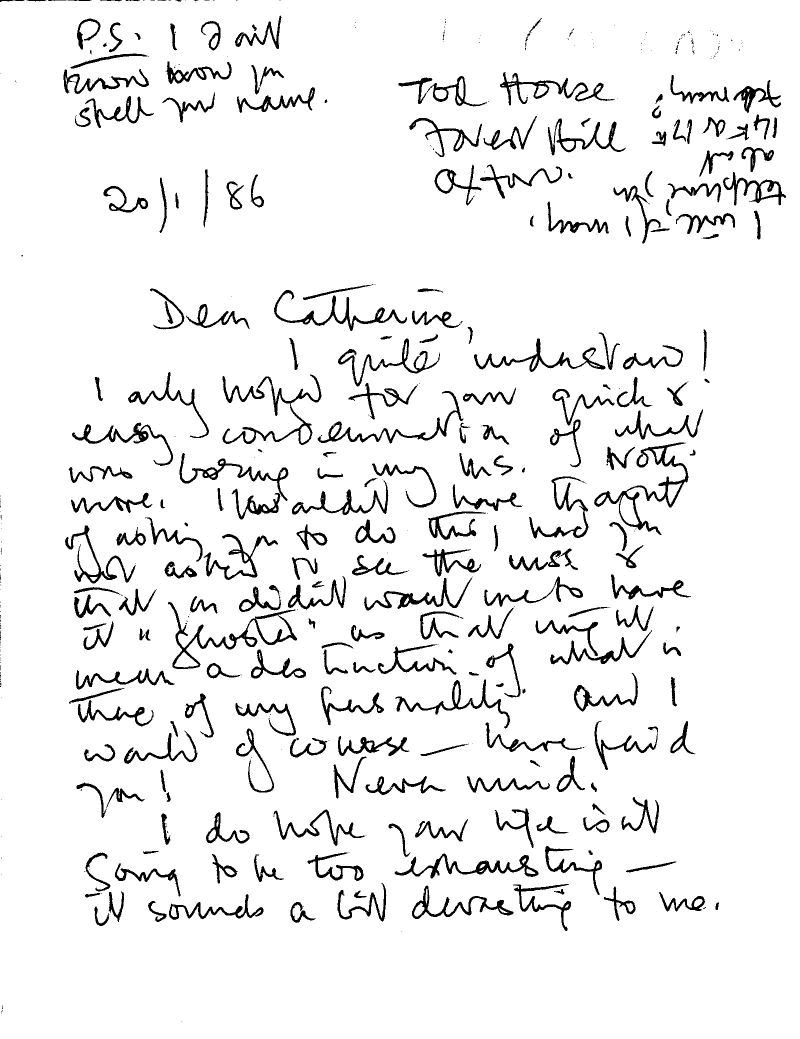 P.S. I don't
know how you
spell your name.
Tod House
Forest Hill
20/1/86
I will, if I may,
telephone you
about
14th or 17th
February?
Dear Catherine,
I quite understand!
I only hoped for your quick &
easy condemnation of what
was boring in my Ms. Nothing
more. I wouldn't have thought
of asking you to do this, had you
not asked to see the mss &
that you didn't want me to have
it "ghosted" as that might
mean a destruction of what is
there, of my personality and I
would of course — have paid
you! Never mind.
I do hope your life isn't
going to be too exhausting —
it sounds a bit devasting to me.